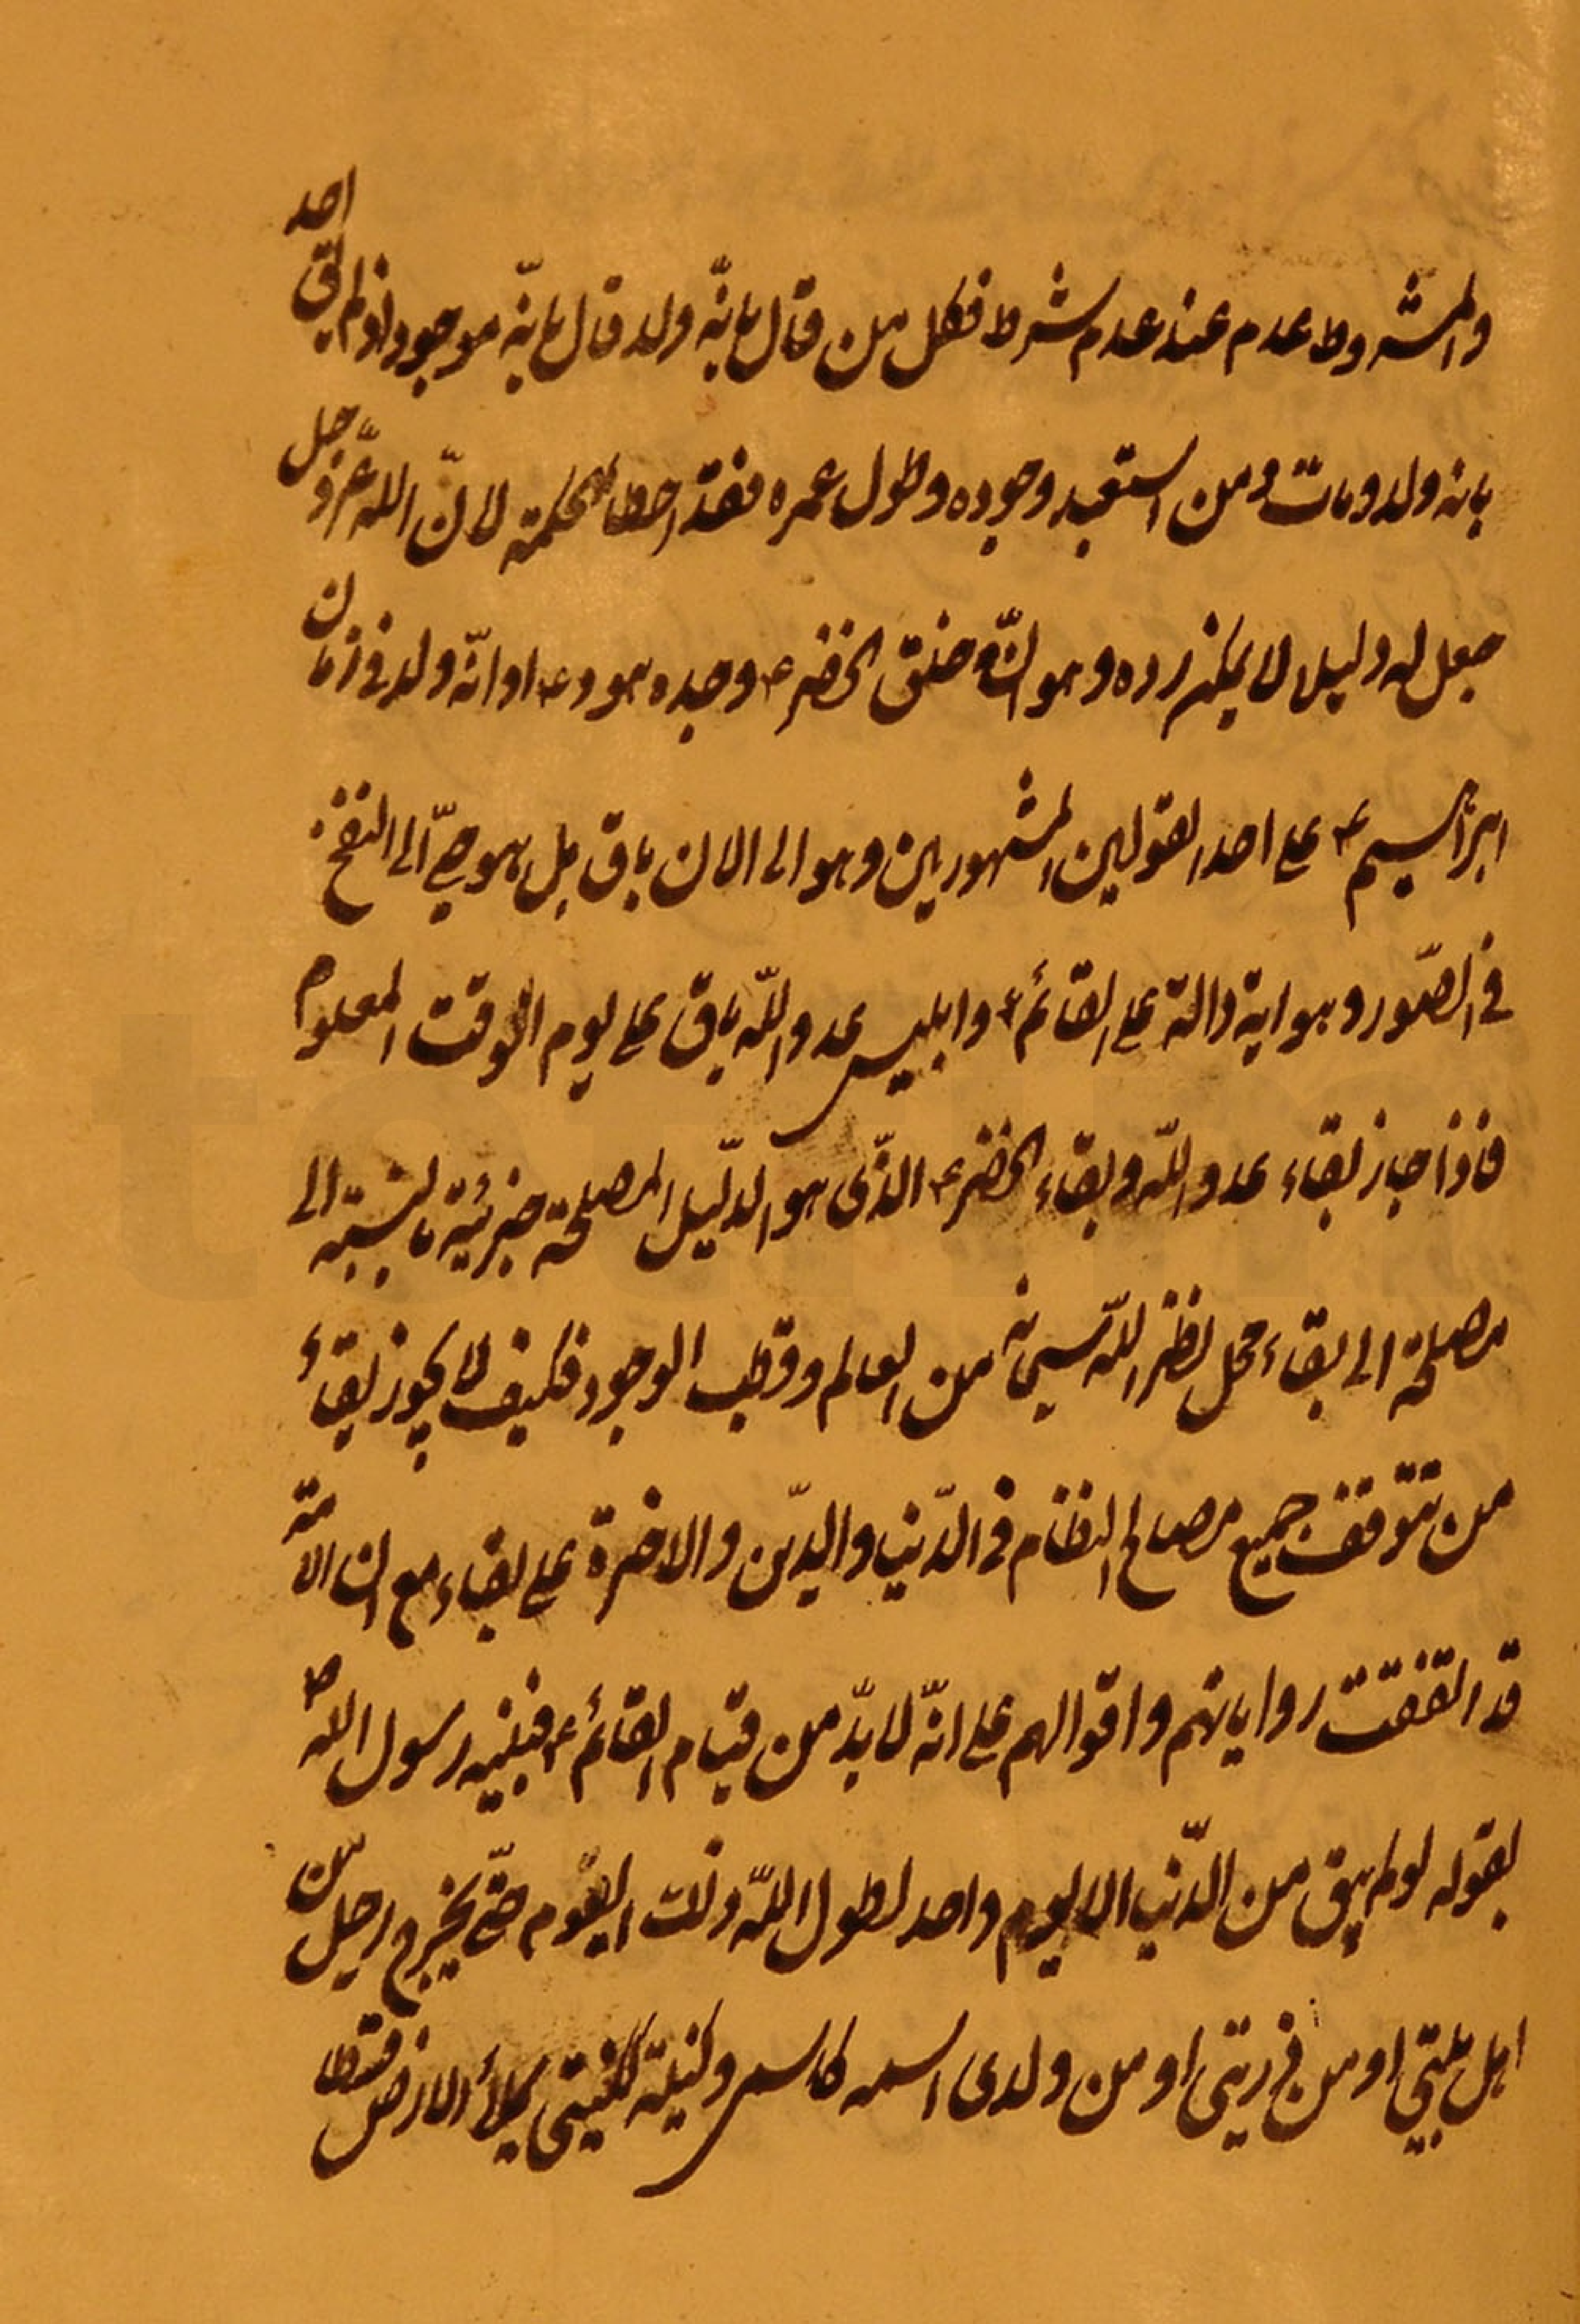 والمشروط عدم عند عدم شرط فكل من قال بانّه ولد قال بانّه موجود اذ لم يق احد
بانه ولد ومات ومن استبعد وجوده وطول عمره فقد اخطا الحكمة لانّ الله عزّ وجل
جعل له دليلا لا يمكن رده وهو انّه خلق الخضر ع وجده هود ع او انّه ولد في زمان
ابراهيم ع على احد القولين المشهورين وهو الى الان باق بل هو حيّ الى النفخ
في الصّور وهو اية دالة على القائم ع وابليس عدو الله باق على يوم الوقت المعلوم
فاذا جاز بقاء عدو الله وبقاء الخضر ع الذّى هو الدلّيل المصلحة جزئية بالنسبة الى
مصلحة الى بقاء محل نظر الله سبحانه من العالم وقطب الوجود فكيف لا يجوز بقاء
من تتوقف جميع مصالح النظام في الدّنيا والدّين والاخرة على بقاء مع ان الامة
قد اتفقت رواياتهم واقوالهم على انّه لا بدّ من قيام القائم ع فبنيه رسول الله ص
بقوله لو لم يبق من الدّنيا الا يوم واحد لطول الله ذلك اليوم حتّى يخرج رجل من
اهل بيتي او من ذريتي او من ولدى اسمه كاسمى وكنيته ككنيتى يملأ الارض قسطا